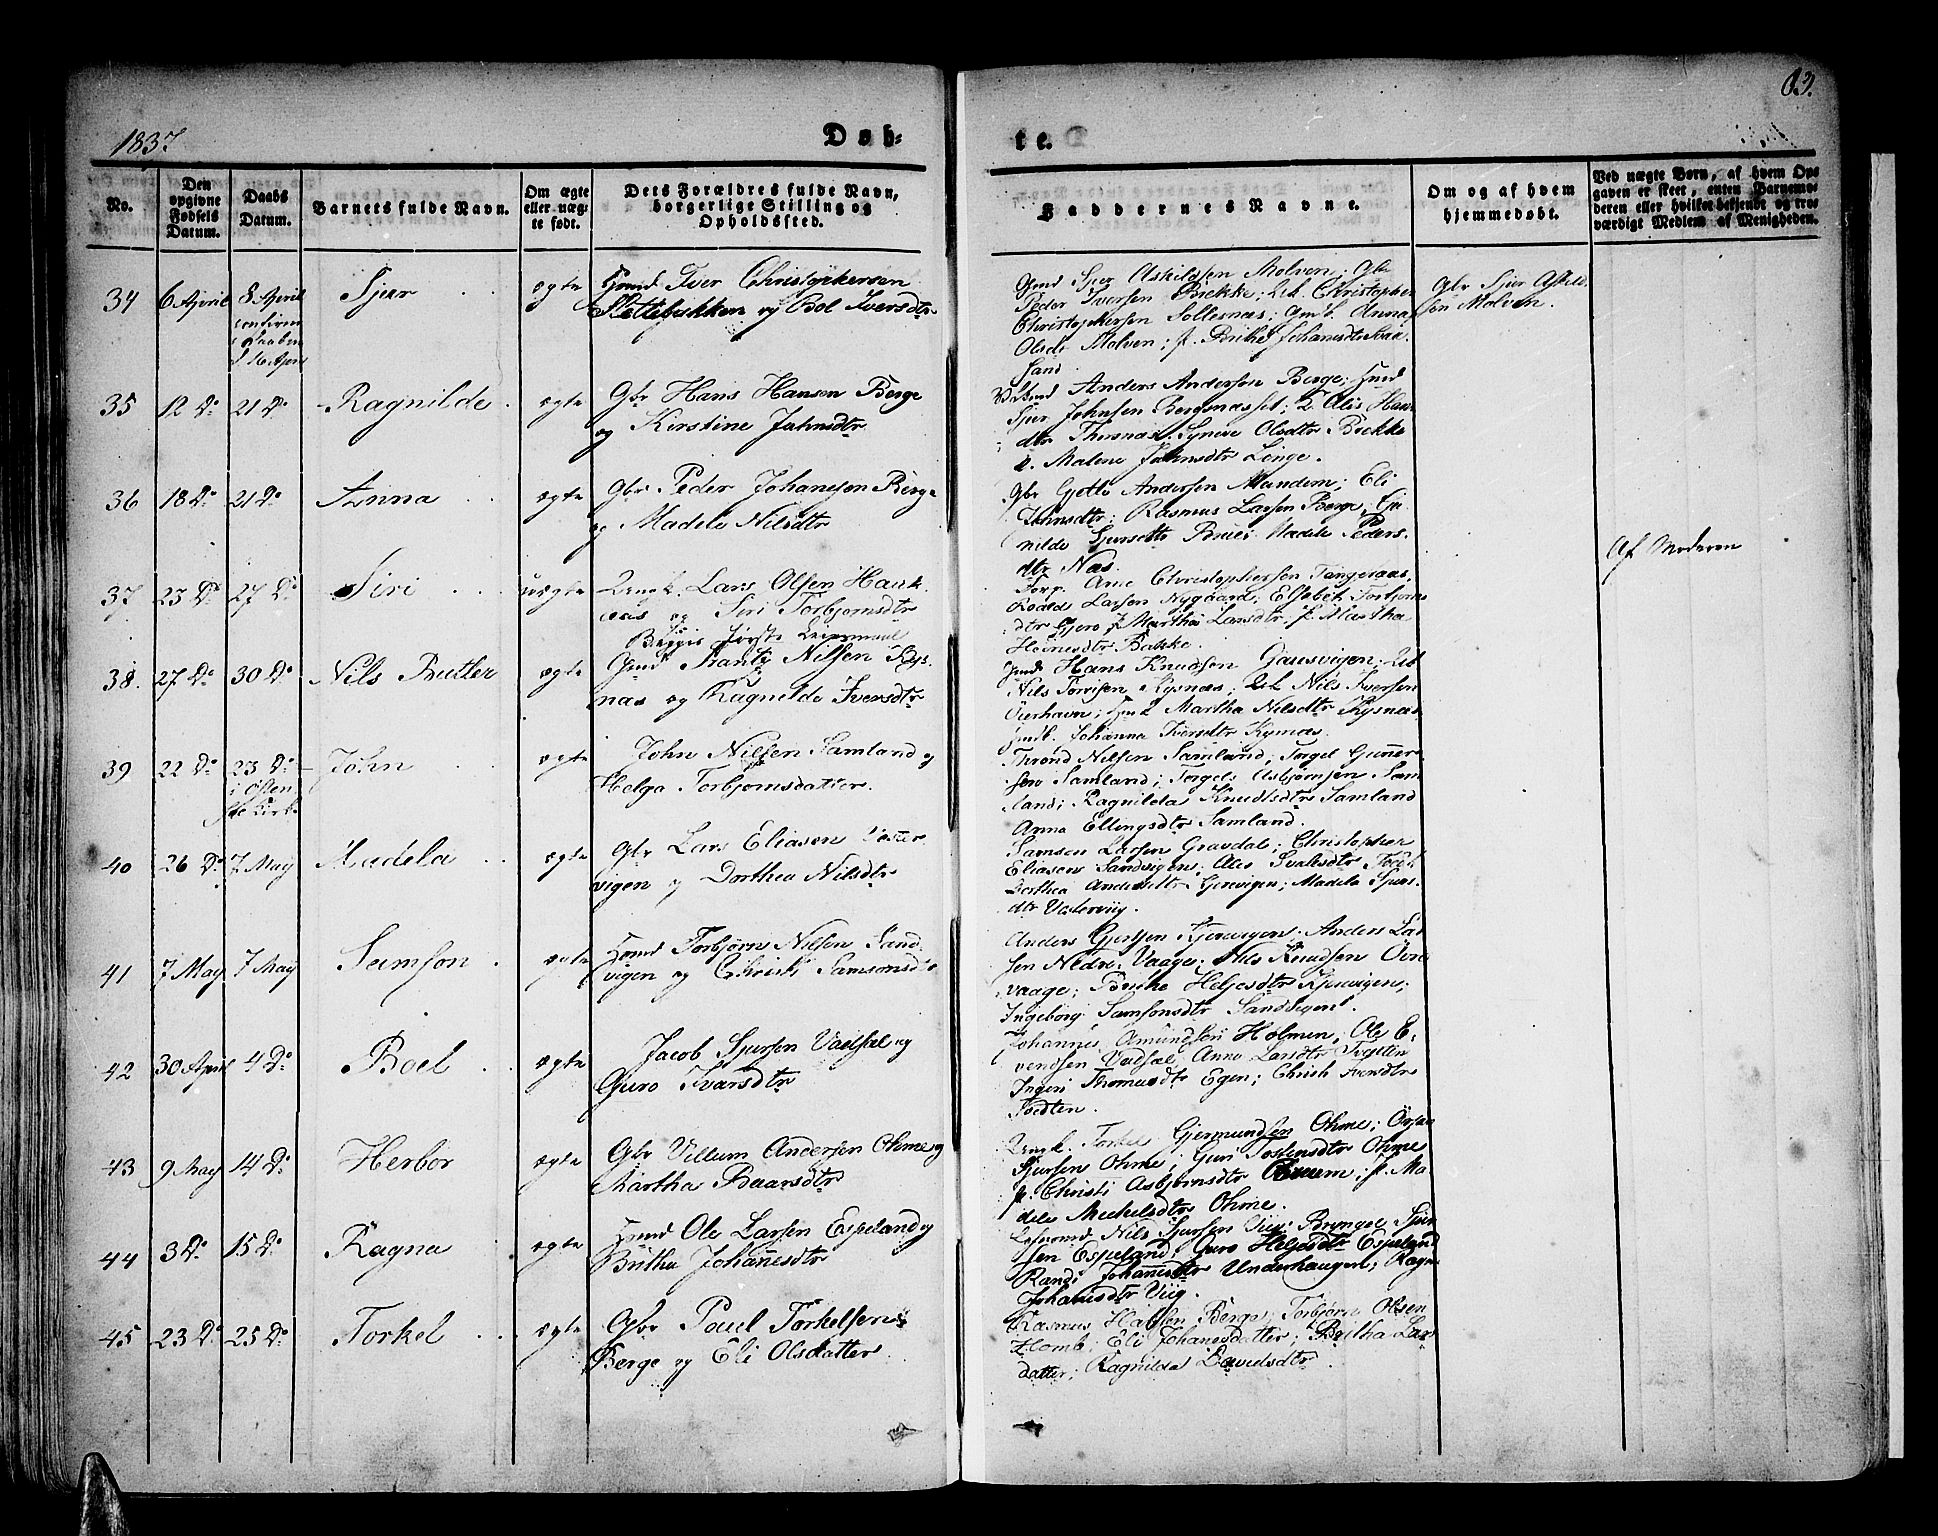 1837
Døb-
te.
No.
Den opgivne Fødsels Datum.
Daabs Datum.
Barnets fulde Navn.
Om ægte eller uægte født.
Dets Forældres fulde Navn, borgerlige Stilling og Opholdssted.
Faddernes Navne.
Om og af hvem hjemmedøbt.
Ved uægte Børn, af hvem Opgaven er skeet, enten Barnemoderen eller hvilket beksendt og troværdigt Medlem af Menigheden.
34 6 April 8 April Sjur ægte Huusmd Iver Christophersen
confirm
i Kirken
d 16 April
Slettebakken og Boel Iversdtr
Gmd Sjur Askildsen Molven; Gbr
Peder Iversen Bække; Christopher
Christophersen Sollesnæs; Anna
Olsdr Molven; p. Brithe Johannesdtr
sand
Gbr Sjur Askild
sen Molven.
35 12 Do 21 Do Ragnilde ægte Gbr Hans Hansen Berge
og Kirstine Johnsdtr
Anders Andersen Berge; Huusmd
Sjur Johnsen Bergsnæsset; Alis Hans
dtr Thorsnæs; Synneve Olsdtr Bække
p. Malene Johnsdtr Linge.
36 18 Do 21 Do Anna ægte Gbr Peder Johannesen Berge
og Madele Nilsdtr
Gbr Gjetle Andersen Mundem; Eli
Johnsdtr; Rasmus Larsen Berge;
nilde Sjursdtr; Madele Peders
dtr Næs.
37 23 Do 27 Do Siri uægte Lars Olsen Hauk
aas og Siri Torbjørnsdtr
Begges første Leiermaal
Arne Christophersen Tangeraas;
Larsen Nygaard; Elsebet Torbjørns
dtr Gjero; p Martha Larsdtr; p. Martha
Heinesdtr Bakke.
Af Moderen
38. 27 Do 30 Do Nils Butler ægte Gmd Frantz Nilsen Rys
næs og Ragnilde Iversdtr
Gmd Hans Knudsen Gausvigen;
Nils Torvisen Rysnæs; Nils Iversen
Øierhavn; Martha Nilsdtr Rysnæs
Johanna Iversdtr Rysnæs.
39 22 Do 23 Do John ægte John Nilsen Samland og
i Østen
søe Kirke
Helga Torbjørnsdatter.
Thrond Nilsen Samland; Torgel Gunner
sen Samland; Torgels Asbjørnsen Sam
land; Ragnilda Knudsdtr Samland
Anna Ellingsdtr Samland.
40 26 Do 7 May Madela ægte Gbr Lars Eliasen
vigen og Dorthea Nilsdtr
Samson Larsen Gravdal; Christopher
Eliasen Sandvigen;
Berthea Andersdtr; Madela Sjurs
dtr
41 7 May 7 May Samson ægte Huusmd Torbjørn Nilsen Sand
vigen og Christi Samsonsdtr
Anders Gjertsen Kjerrvigen; Anders Lar
sen Nedre-Vaage; Nils Knudsen Øvre
vaage; Brithe Heljesdtr Kjerrvigen;
Ingeborg Samsonsdtr Sandvigen.
42 30 April 4 Do Boel ægte Jacob Sjursen Vadsæl og
Guro Ivarsdtr
Johannes Amundsen Holmen; Ole E-
vendsen Vadsæl; Anna Larsdtr Tvedten
Ingeri Thomasdtr Egen; Christi Iversdtr
Tvedten.
43 9 May 14 Do Herbor ægte Gbr Villum Andersen Ohme og
Martha Baarsdtr
Torkel Gjermundsen Ohme; Ørjan
Sjursen Ohme; Guri Tostensdtr Ohme
p. Christi Asbjørnsdtr; p. Ma
dele Mickelsdtr Ohme.
44 3 Do 15 Do Ragna ægte Huusmd Ole Larsen Espeland og
Britha Johannesdtr
Nils Sjursen Viig; Bryngel Sjur
sen Espeland; Guro Heljesdtr Espeland
Randi Johannesdtr Underhaugen; Ragna
Johannesdtr Viig.
45 23 Do 25 Do Torkel ægte Gbr Paul Torkelsen
Berge og Eli Olsdatter
Rasmus Halsen Berge; Torbjørn Olsen
Flomb. Eli Johannesdatter; Britha Lars
datter; Ragnilda Davidsdtr.